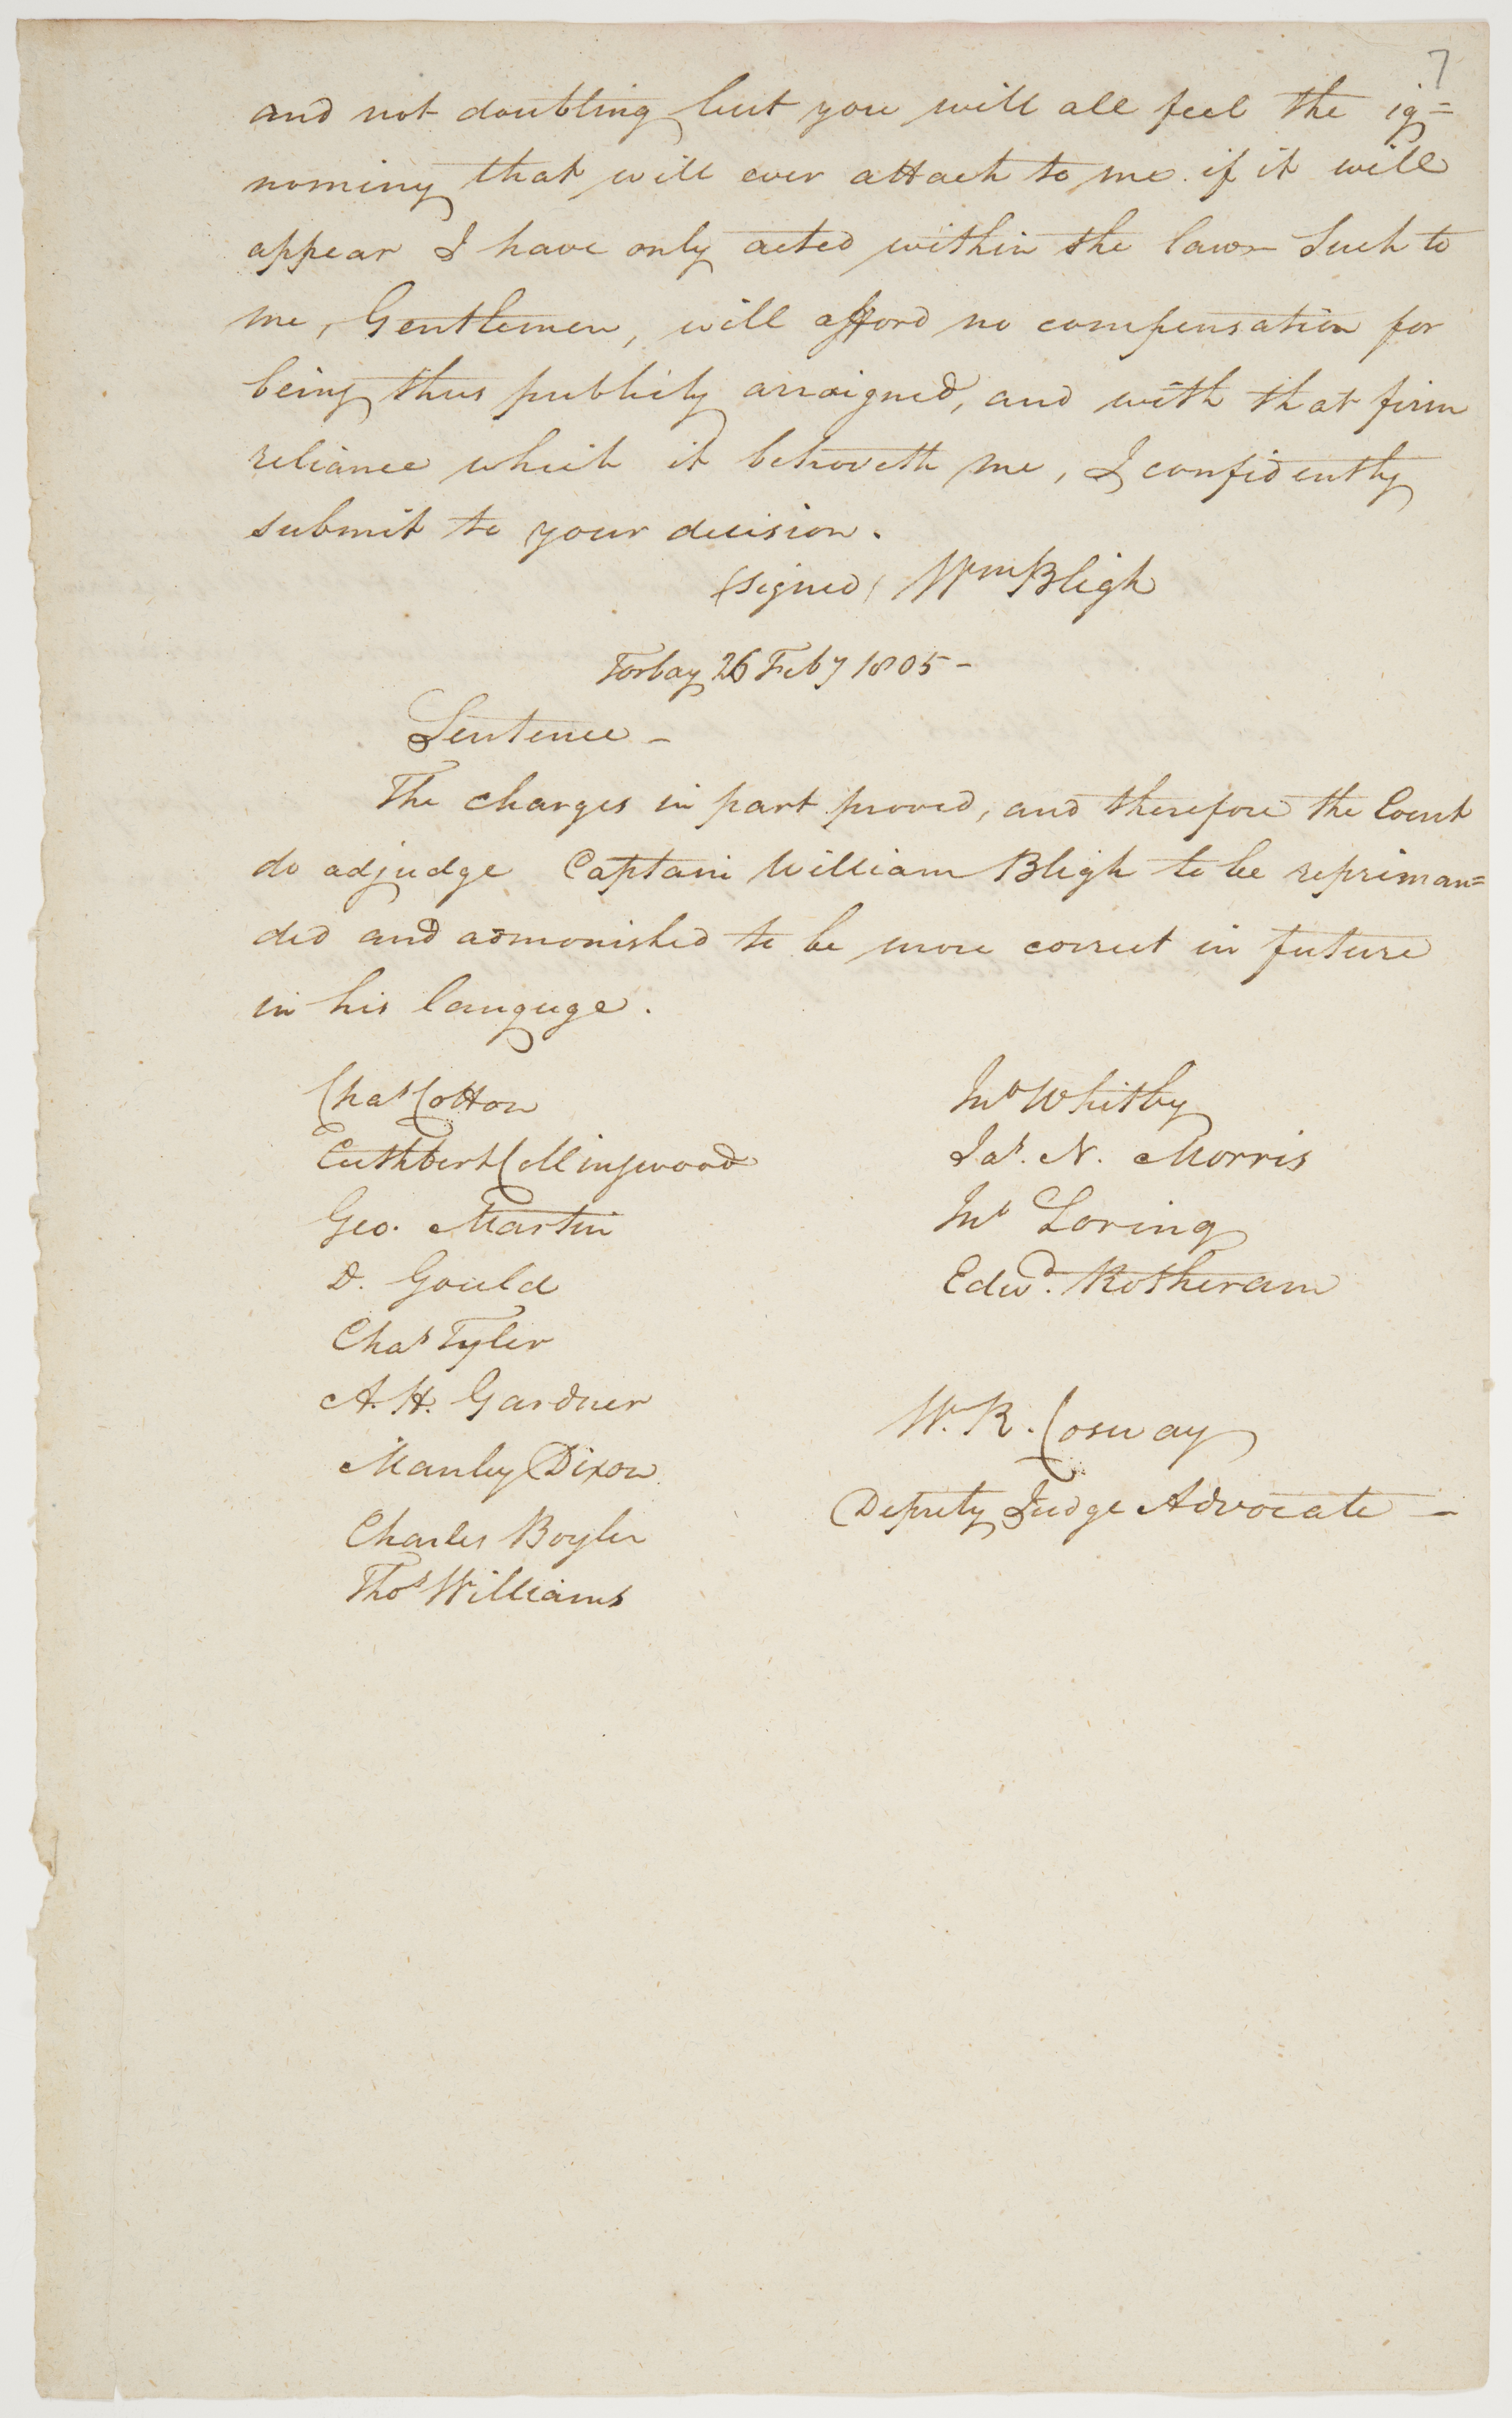 7
and not doubting but you will all feel the ig=
nominy that will ever attach to me if it will
appear I have only acted within the law – Such to
me, Gentlemen, will afford no compensation for
being thus publicly arraigned, and with that firm
reliance which it behoveth me, I confidently
submit to your decision.
(signed) Wm Bligh
Torbay 26 Feby 1805 –
Sentence –
The charges in part proved, and therefore the Court
do adjudge Captain William Bligh to be repriman=
ded and admonished to be more correct in future
in his languge.
Chas Cotton
Cuthbert Collingwood
Geo. Martin
D. Gould
Chas Tyler
A. H. Gardner
Manley Dixon
Charles Boyler
Thos Williams
Jno Whitby
Jas. N. Morris
Jno Loring
Edwd. Rotheram
W. R. Cosway
Deputy Judge Advocate –